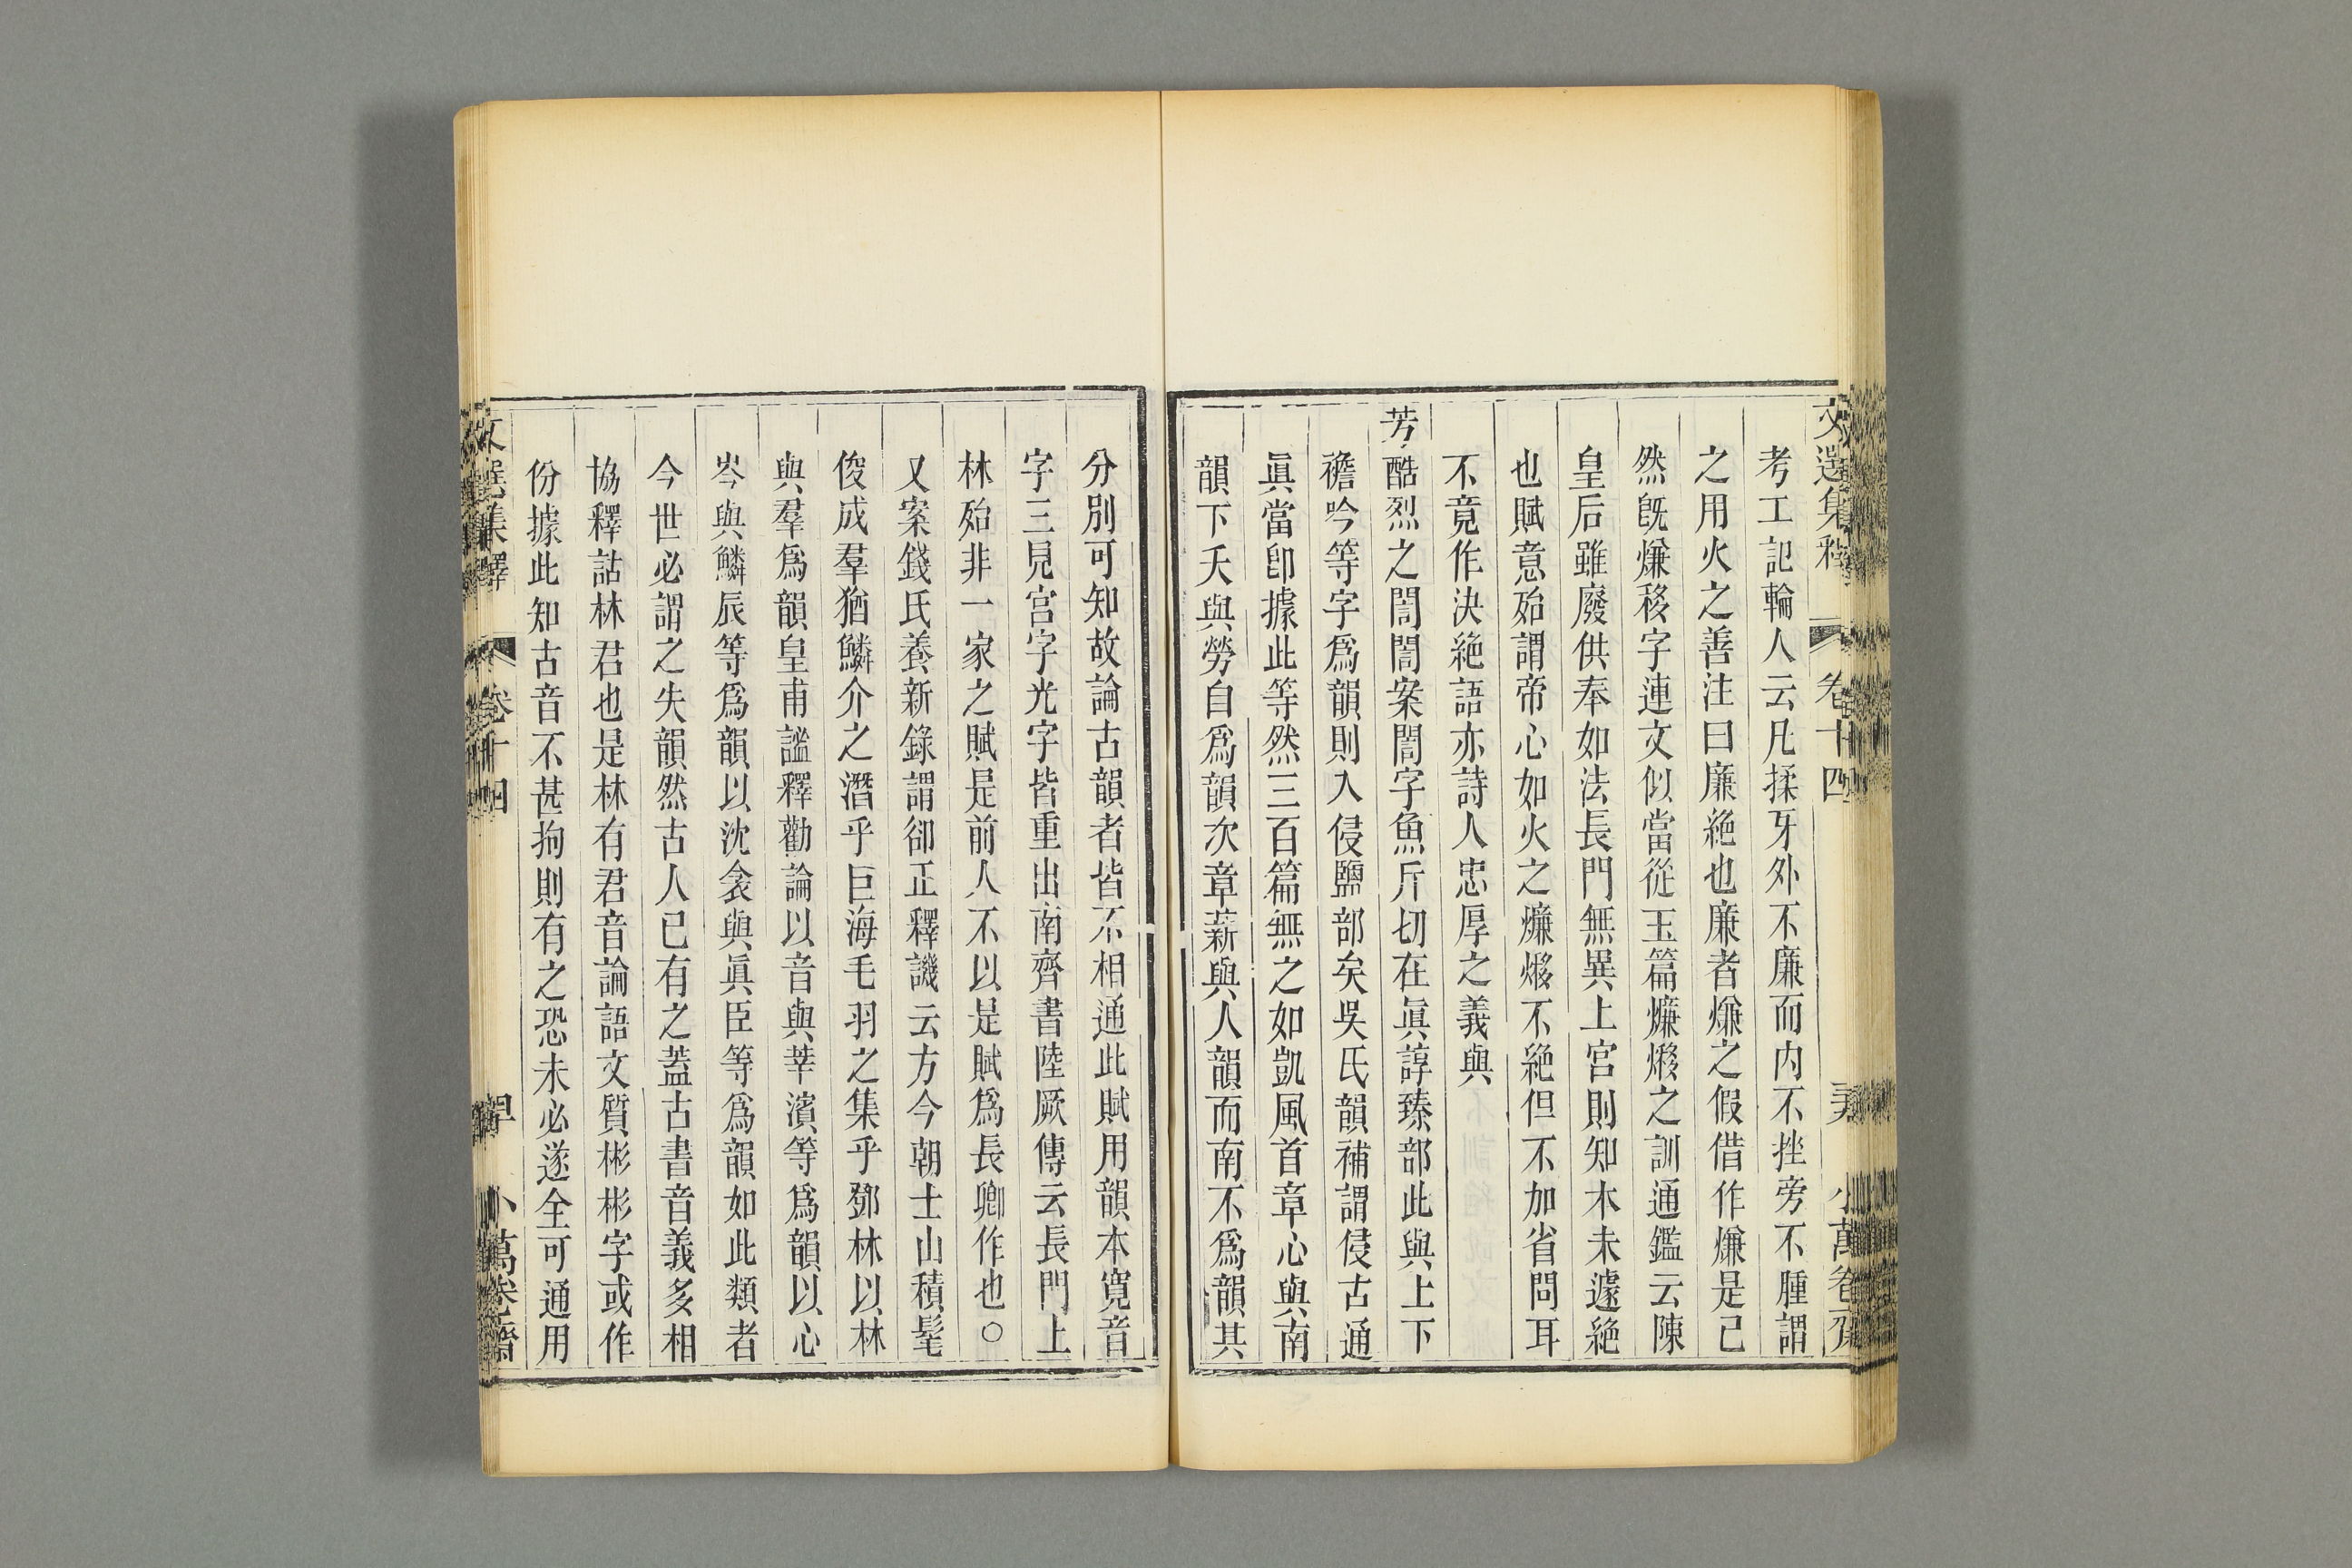 文選集釋 卷十四 小萬卷齋
考工記輪人云凡揉牙外不廉而内不挫旁不腫謂
之用火之善注曰廉絶也廉者熑之假借作熑是已
然旣熑移字連文似當從玉篇㷰熪之訓通鑑云陳
皇后雖廢供奉如法長門無異上宮則知木未遽絶
也賦意殆謂帝心如火之㷰熪不絶但不加省問耳
不竟作決絶語亦詩人忠厚之義與
芳酷烈之誾誾案誾字魚斤切在眞諄臻部此與上下
襜吟等字爲韻則入侵鹽部矣吳氏韻補謂侵古通
眞當卽據此等然三百篇無之如凱風首章心與南
韻下夭與勞自爲韻次章薪與人韻而南不爲韻其
分別可知故論古韻者皆不相通此賦用韻本寬音
字三見宮字光字皆重出南齊書陸厥傳云長門上
林殆非一家之賦是前人不以是賦爲長卿作也〇
又案錢氏養新錄謂郤正釋譏云方今朝士山積髦
俊成羣猶鱗介之潛乎巨海毛羽之集乎鄧林以林
與羣爲韻皇甫謐釋勸論以音與莘濱等爲韻以心
岑與鱗辰等爲韻以沈衾與眞臣等爲韻如此類者
今世必謂之失韻然古人已有之蓋古書音義多相
協釋詁林君也是林有君音論語文質彬彬字或作
份據此知古音不甚拘則有之恐未必遂全可通用
文選集釋 卷十四 小萬卷齋